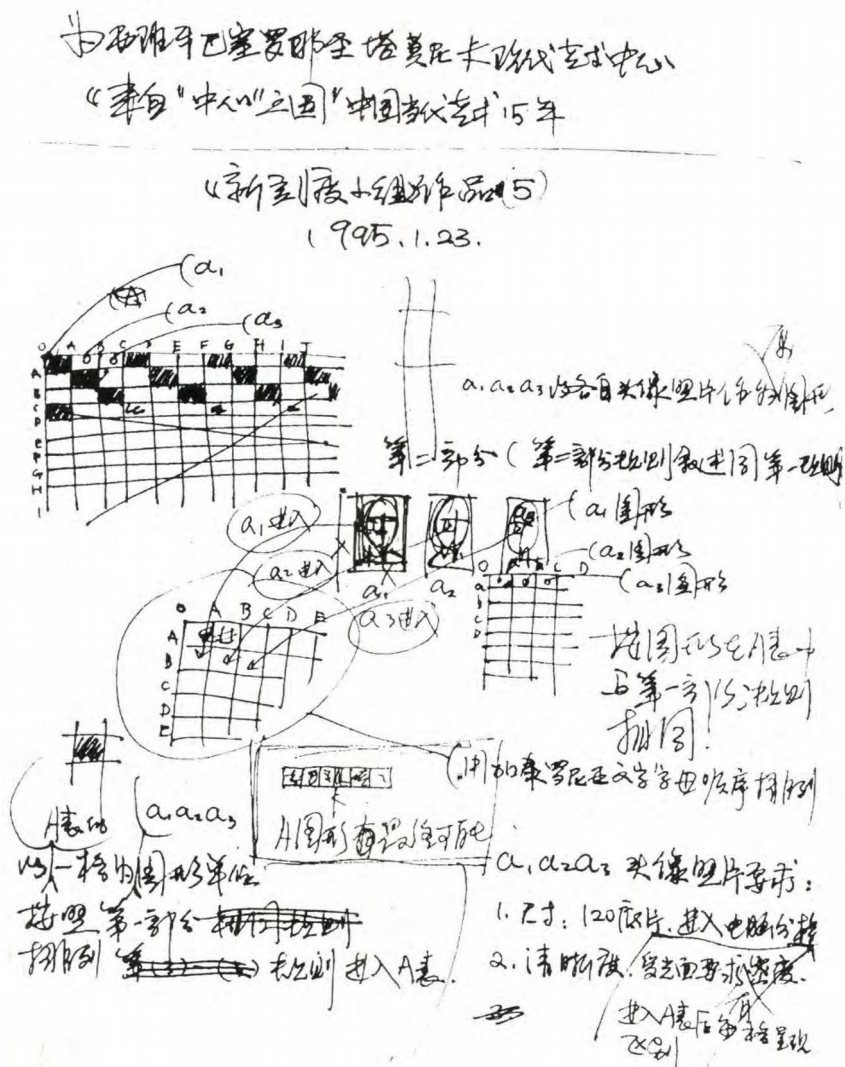 为西班牙巴塞罗那圣塔莫尼卡现代艺术中心
《来自"中心"之国"中国当代艺术15年
《新刻度小组作品(5)
1995.1.23.
(a1
(A)
(a2
(a3
O A B C D E F G H I J
A
B
C
D
E
F
G
H
I
a1 a2 a3 设各自头像照片作为图形
第二部分(第二部分规则叙述同第一规则
a1进入
a2进入
a3进入
a1
a2
(a1图形
(a2图形
(a3图形
O A B C D
a
b
c
D
O A B C D E
A
B
C
D
E
按图形在A表中
与第一部份规则
相同!
(用加泰罗尼亚文字字母顺序排列
A图形有没任可能
A表的
a1 a2 a3
以一格为图形单位
按照第一部分
排列 规则进入A表.
a1 a2 a3 头像照片要求:
1. 尺寸: 120底片. 进入电脑分格
2. 清晰度. 受光面要求密度.
进入A表后每格呈现
区别